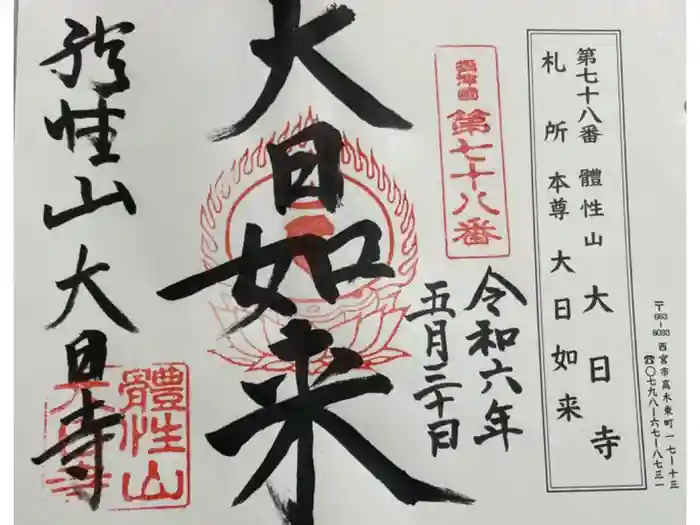 第七十八番 體性山 大日寺
札所本尊 大日如来
〒663-8033 西宮市高木東町一七-十三
☎〇七九八-六七-八七三一
摂津國 第七十八番
令和六年
五月三十日
大日如来
體性山 大日寺
體性山
大日寺